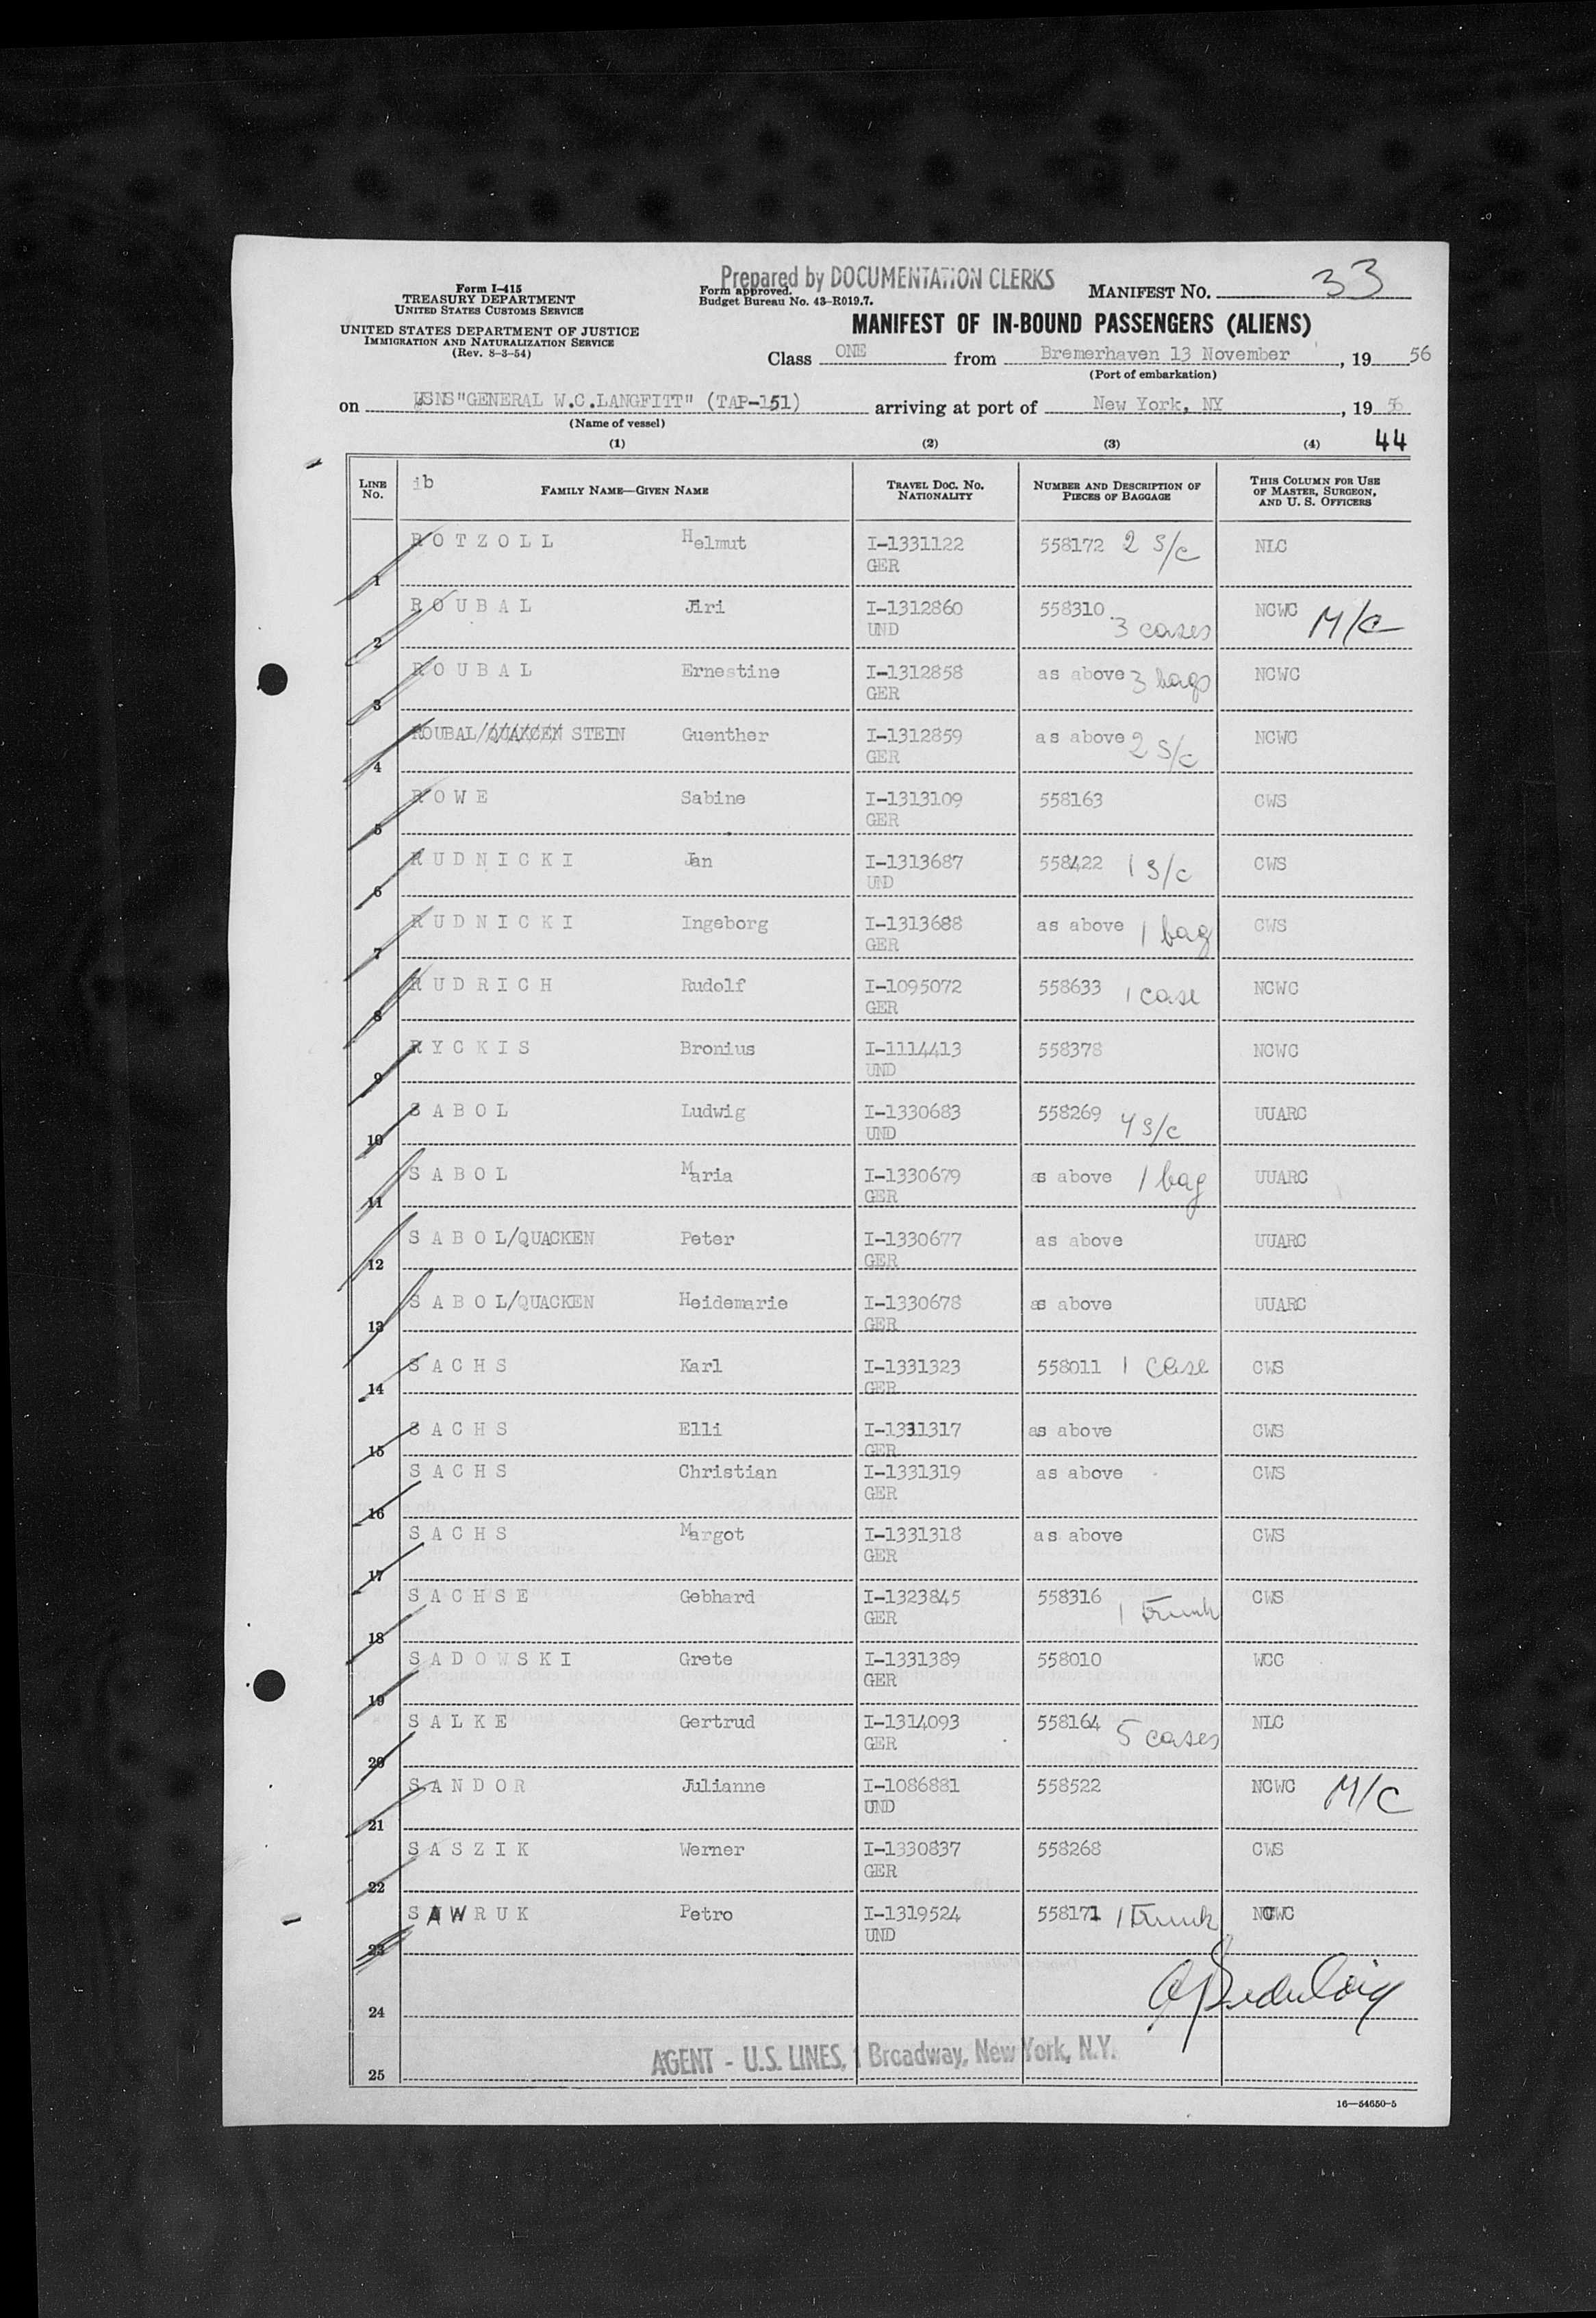 Prepared by DOCUMENTATION CLERKS
Form I-415
TREASURY DEPARTMENT
UNITED STATES CUSTOMS SERVICE
UNITED STATES DEPARTMENT OF JUSTICE
IMMIGRATION AND NATURALIZATION SERVICE
(Rev. 8-3-54)
Form approved.
Budget Bureau No. 43-R019.7.
MANIFEST NO. 33
MANIFEST OF IN-BOUND PASSENGERS (ALIENS)
Class ONE from Bremerhaven 13 November, 19 56
(Port of embarkation)
on USNS"GENERAL W.C.LANGFITT" (TAP-151) arriving at port of New York, NY, 19 56
(Name of vessel)
(1) (2) (3) (4) 44
LINE No. ib FAMILY NAME—GIVEN NAME TRAVEL DOC. NO. NATIONALITY NUMBER AND DESCRIPTION OF PIECES OF BAGGAGE THIS COLUMN FOR USE OF MASTER, SURGEON, AND U. S. OFFICERS
1 R O T Z O L L Helmut I-1331122 558172 2 S/c NLC
GER
2 R O U B A L Jiri I-1312860 558310 3 cases NCWC M/C
UND
3 R O U B A L Ernestine I-1312858 as above 3 bags NCWC
GER
4 ROUBAL/QUAKCEN STEIN Guenther I-1312859 as above 2 S/c NCWC
GER
5 R O W E Sabine I-1313109 558163 CWS
GER
6 R U D N I C K I Jan I-1313687 558422 1 S/c CWS
UND
7 R U D N I C K I Ingeborg I-1313688 as above 1 bag CWS
GER
8 R U D R I C H Rudolf I-1095072 558633 1 case NCWC
GER
9 R Y C K I S Bronius I-1114413 558378 NCWC
UND
10 S A B O L Ludwig I-1330683 558269 4 S/c UUARC
UND
11 S A B O L Maria I-1330679 as above 1 bag UUARC
GER
12 S A B O L/QUACKEN Peter I-1330677 as above UUARC
GER
13 S A B O L/QUACKEN Heidemarie I-1330678 as above UUARC
GER
14 S A C H S Karl I-1331323 558011 1 case CWS
GER
15 S A C H S Elli I-1331317 as above CWS
GER
16 S A C H S Christian I-1331319 as above CWS
GER
17 S A C H S Margot I-1331318 as above CWS
GER
18 S A C H S E Gebhard I-1323845 558316 1 Trunk CWS
GER
19 S A D O W S K I Grete I-1331389 558010 WCC
GER
20 S A L K E Gertrud I-1314093 558164 5 cases NLC
GER
21 S A N D O R Julianne I-1086881 558522 NCWC M/C
UND
22 S A S Z I K Werner I-1330837 558268 CWS
GER
23 S A W R U K Petro I-1319524 558171 1 Trunk NCWC
UND
24
25 AGENT - U.S. LINES, 1 Broadway, New York, N.Y.
16—54650-5